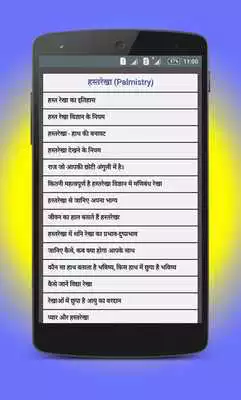 67% 11:00
हस्तरेखा (Palmistry)
हस्त रेखा का इतिहास
हस्त रेखा विज्ञान के नियम
हस्तरेखा - हाथ की बनावट
हस्तरेखा देखने के नियम
राज जो आपकी छोटी अंगुली में है।
कितनी महत्वपूर्ण है हस्तरेखा विज्ञान में मणिबंध रेखा
हस्तरेखा से जानिए अपना भाग्य
जीवन का हाल बताते हैं हस्तरेखा
हस्तरेखा में शनि रेखा का प्रभाव-दुष्प्रभाव
जानिए कैसे, कब क्या होगा आपके साथ
कौन सा हाथ बताता है भविष्य, किस हाथ में छुपा है भविष्य
कैसे जानें विद्या रेखा
रेखाओं में छुपा है आयु का वरदान
प्यार और हस्तरेखा